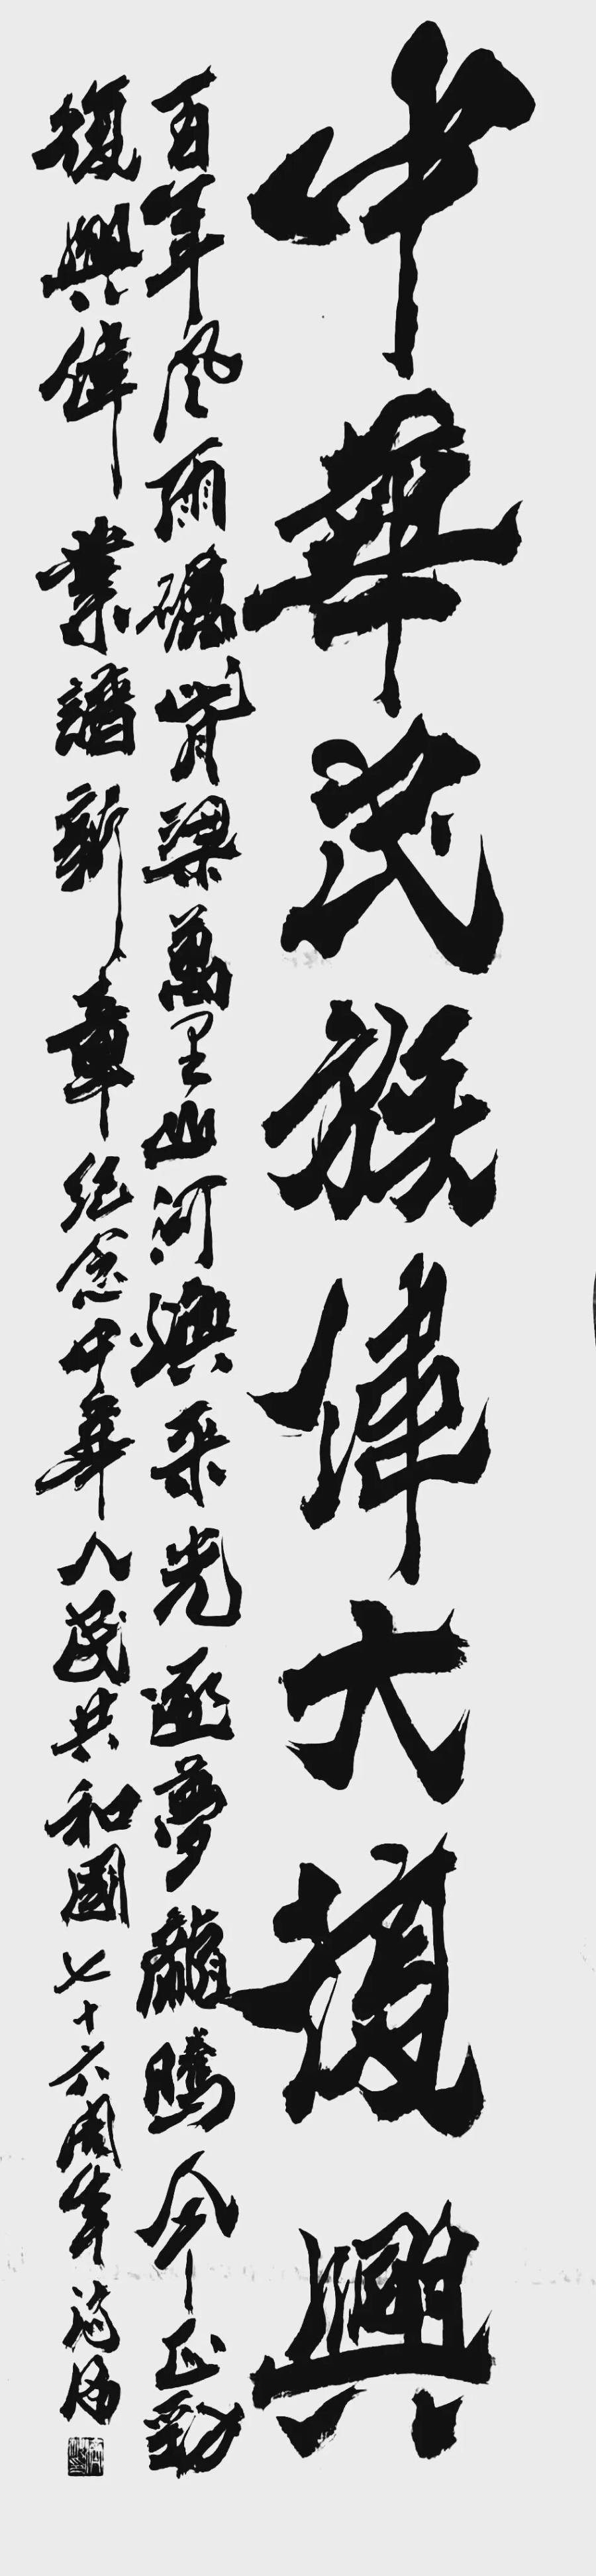 中華民族偉大復興
百年風雨礪脊梁萬里山河煥采光逐夢龍騰今正勁
復興偉業譜新章紀念中華人民共和國七十六周年